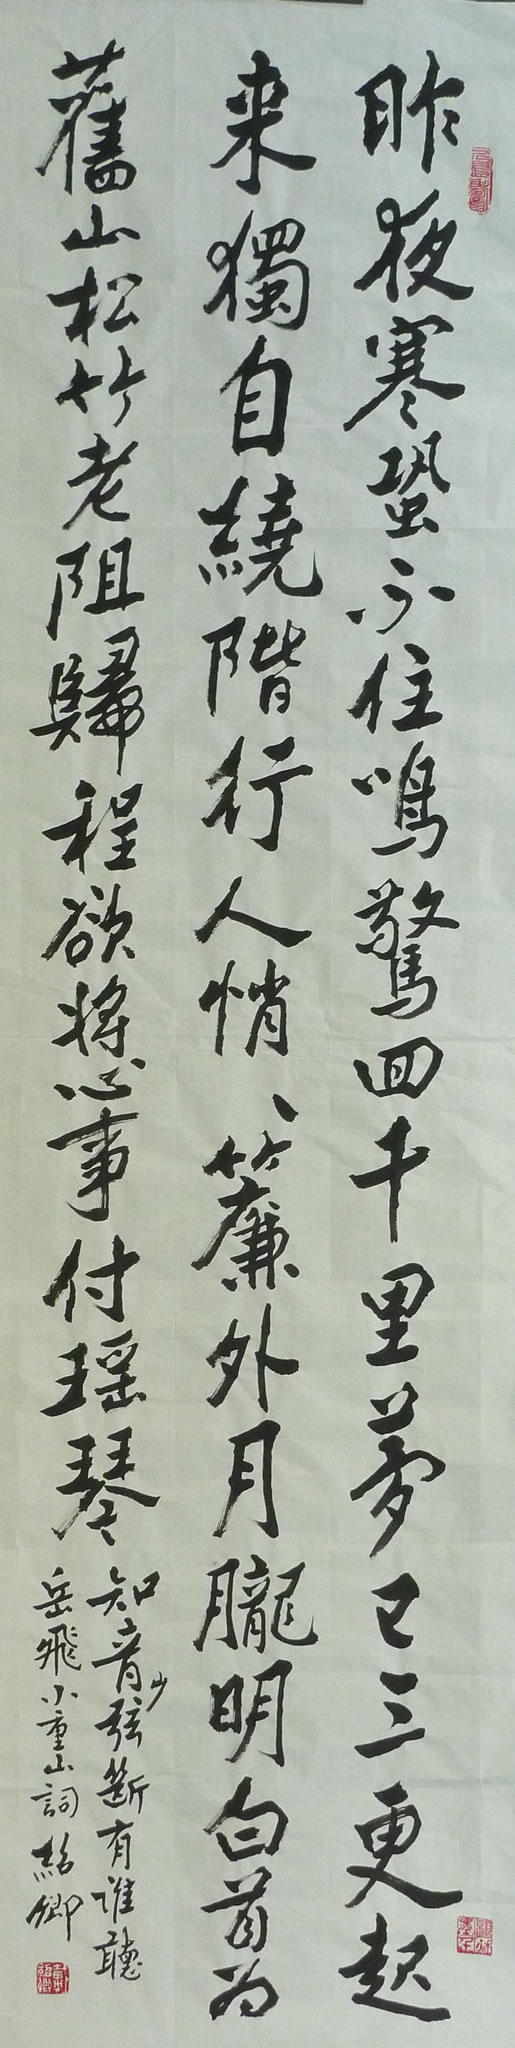 昨夜寒蛩不住鳴驚回千里夢已三更起
来獨自繞階行人悄、簾外月朧明白首為
舊山松竹老阻歸程欲將心事付瑤琴
知音少弦斷有誰聽
岳飛小重山詞 紹卿